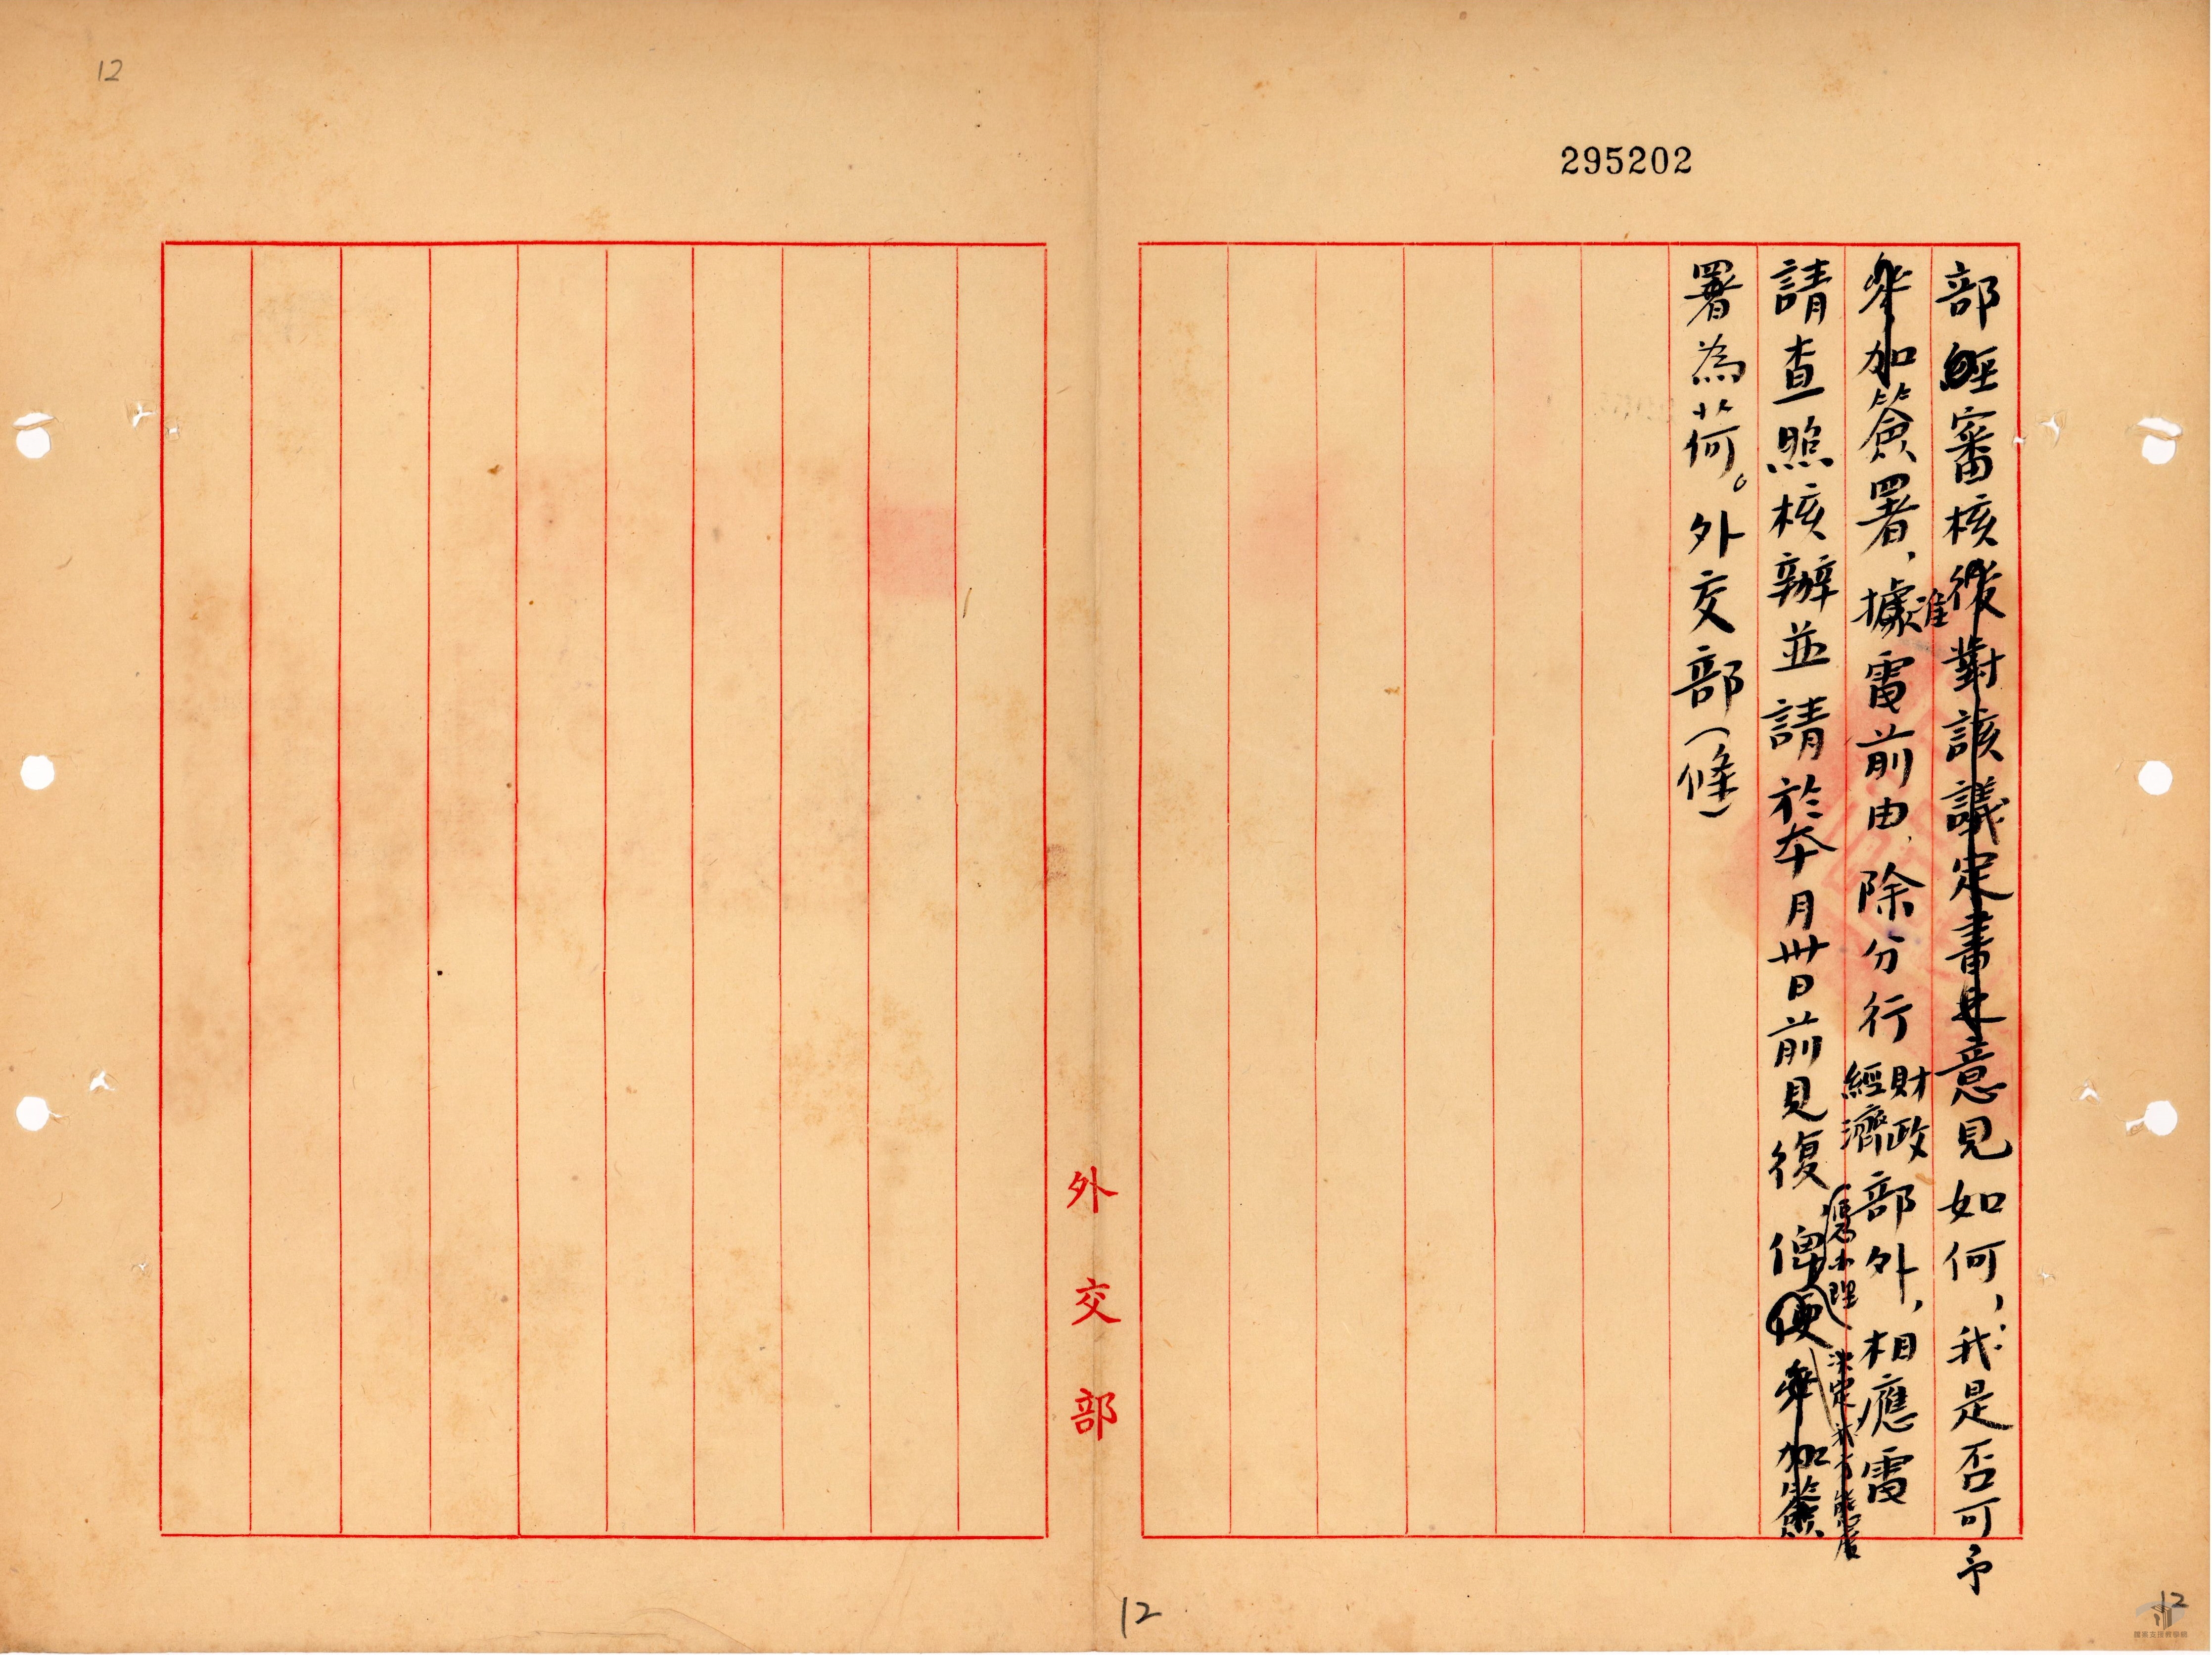 12
295202
部經審核後對該議定書之意見如何，我是否可予
參加簽署，據准電前由，除分行財政經濟部外，相應電
請查照核辦並請於本月卅日前見復俾便參加簽
憑辦理
決定我方態度
署為荷。外交部（條）
外交部
12
12